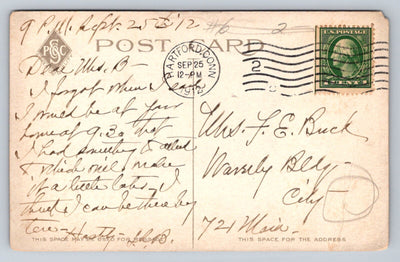 9 P.M. Sept. 25th '12
#6 2
POST CARD
PSC
HARTFORD, CONN.
SEP 25
12-PM
1912
2
U.S. POSTAGE
CENTS
Dear Mrs. B-
I forgot when I
I would be at your
home at 9.30 that
I had something to attend
to which will make
it a little later. I
think I can be there by
ten-
Mrs. F. E. Buck
Waverly Bldg-
City-
721 Main-
THIS SPACE MAY BE USED FOR
THIS SPACE FOR THE ADDRESS